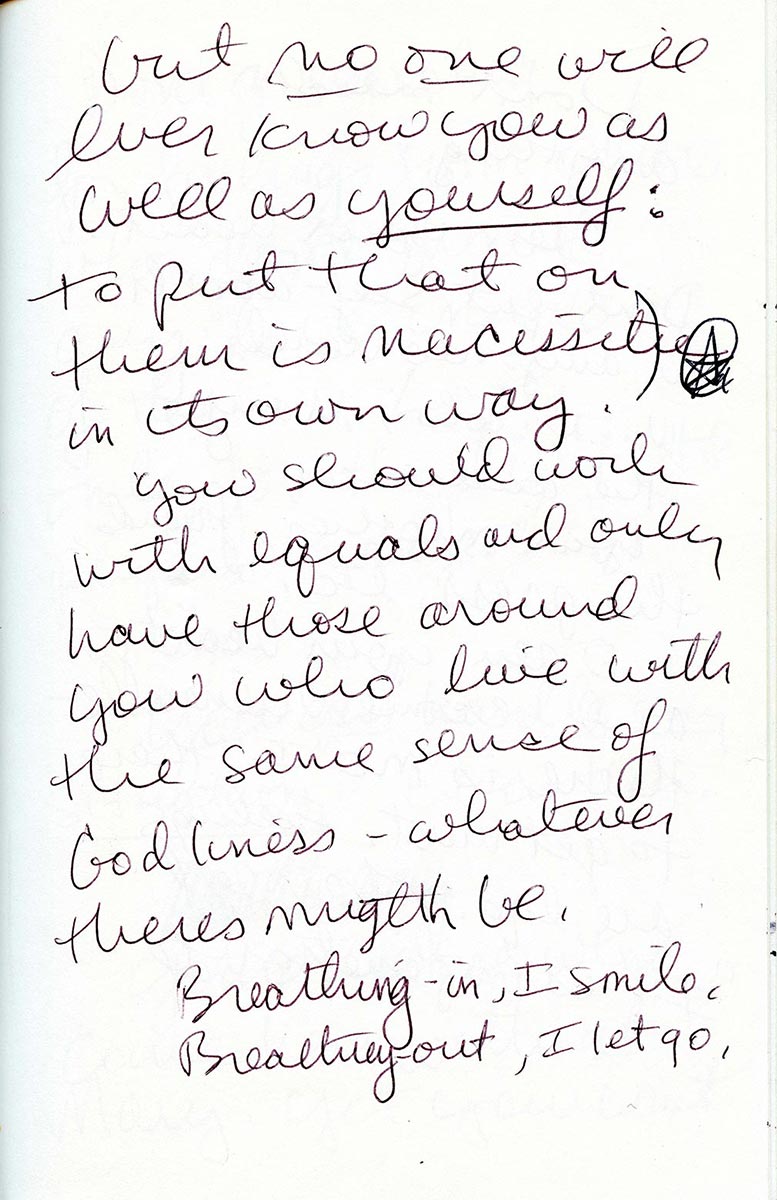 but no one will
ever know you as
well as yourself:
to put that on
them is
in its own way.
you should work
with equals and only
have those around
you who live with
the same sense of
Godliness - whatever
theres be.
Breathing-in, I smile.
Breathing-out, I let go.